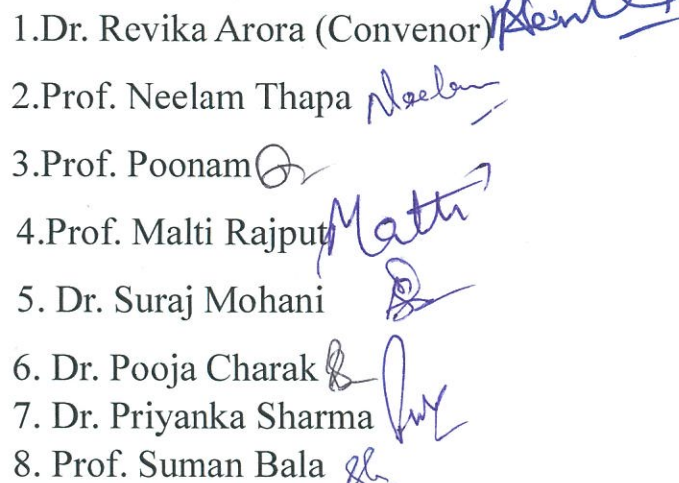 1.Dr. Revika Arora (Convenor)
2.Prof. Neelam Thapa Neelam
3.Prof. Poonam
4.Prof. Malti Rajput Malti
5. Dr. Suraj Mohani
6. Dr. Pooja Charak
7. Dr. Priyanka Sharma
8. Prof. Suman Bala